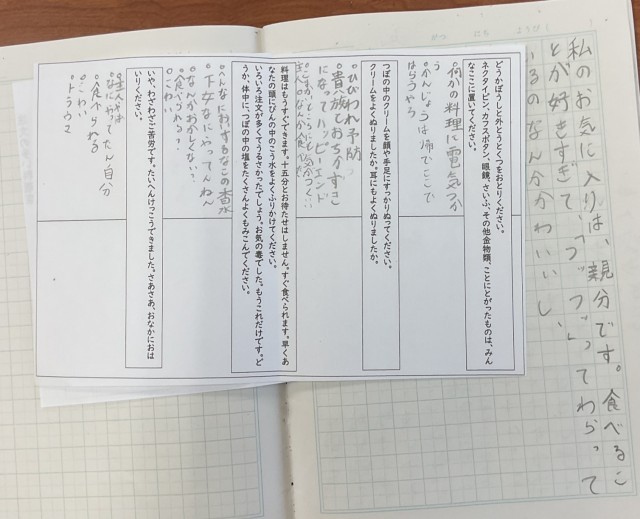 私のお気に入りは、親分です。食べるこ
とが好きすぎて、「フッフッ」ってわらって
いるのなんかかわいいし、
どうかぼうしと外とうとくつをおとりください。
ネクタイピン、カフスボタン、眼鏡、さいふ、その他金物類、ことにとがったものは、みん
なここに置いてください。
何かの料理に電気つか
う
かんじょうは帰でここで
はらうやろ
つぼの中のクリームを顔や手足にすっかりぬってください。
クリームをよくぬりましたか。耳にもよくぬりましたか。
ひびわれ予防
貴族とおちかずきに
なってハッピーエンド
料理はもうすぐできます。十五分とお待たせはしません。すぐ食べられます。早くあ
なたの頭にびんの中のこう水をよくふりかけてください。
いろいろ注文が多くてうるさかったでしょう。お気の毒でした。もうこれだけです。ど
うか、体中に、つぼの中の塩をたくさんよくもみこんでください。
へんなにおいするなこの香水
下女なにやってんねん
なんかおかしくない?
食べられる?
こわい
いや、わざわざご苦労です。たいへんけっこうできました。さあさあ、おなかにおは
いりください。
なにやってたん自分
食べられる
こわい
トラウマ